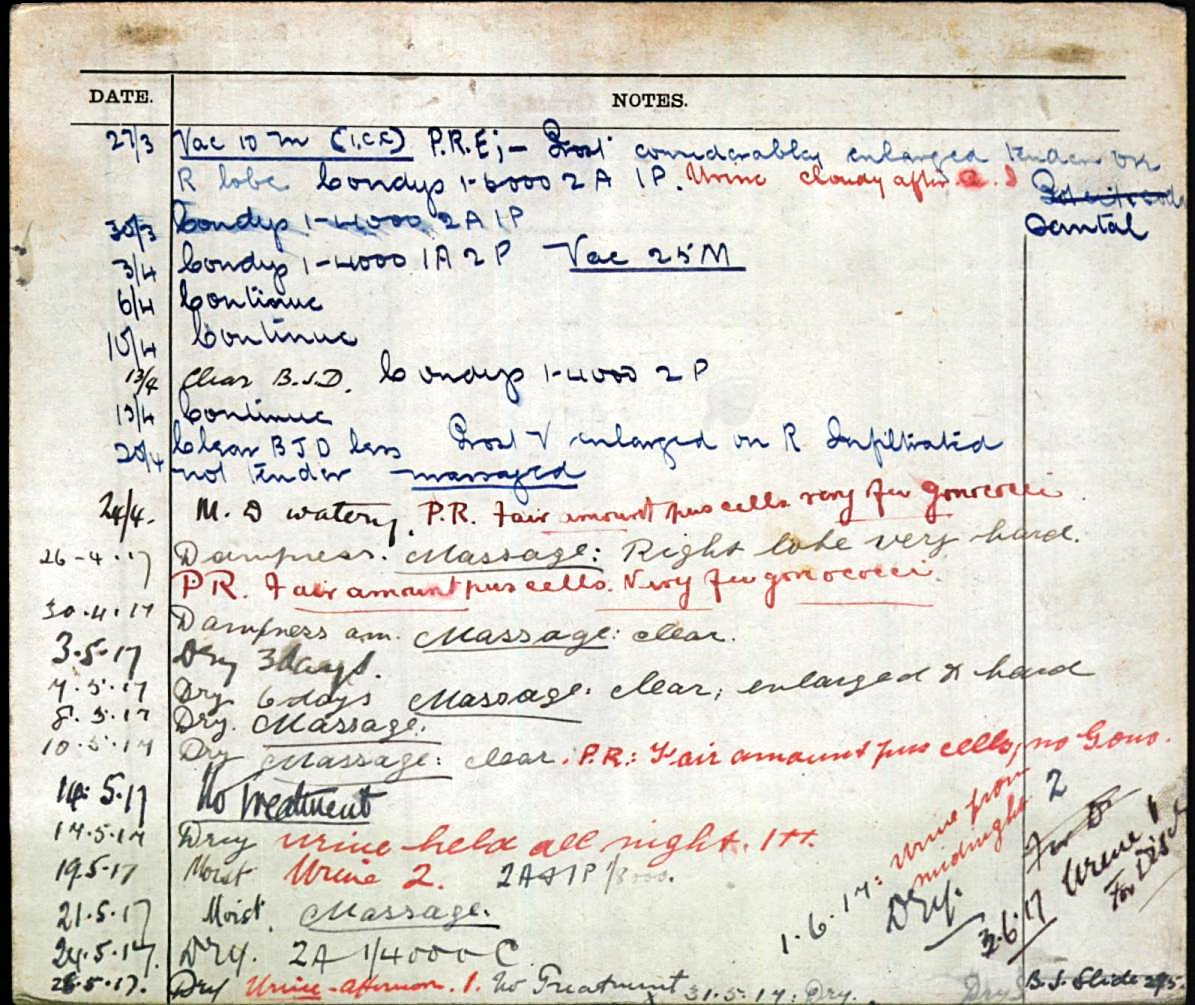 DATE. NOTES.
27/3 Vac 10 m (1.C.C) P.R.E; - Prost considerably enlarged tender on
R lobe Condys 1-6000 2 A 1 P. Urine cloudy after
Santal
30/3 Condys 1-4000 2 A 1 P
3/4 Condys 1-4000 1 A 2 P Vac 25 M
6/4 Continue
10/4 Continue
13/4 Clear B.J.D. Condys 1-4000 2 P
Continue
20/4 Clear B J D less Prost V enlarged on R Infiltrated
not tender massaged
24/4. M. D watery. P.R. Fair amount pus cells very few gonococci.
26-4-17 Dampness. Massage: Right lobe very hard.
P.R. Fair amount pus cells. Very few gonococci.
30.4.17 Dampness am. Massage: clear.
3.5.17 Dry 3 days.
7.5.17 Dry 6 days Massage: clear; enlarged & hard
8.5.17 Dry. Massage.
10.5.17 Dry Massage: clear. P.R: Fair amount pus cells, no Gono.
14.5.17 No Treatment
17.5.17 Dry urine held all night. 1++.
19.5.17 Moist Urine 2. 2A+1P 1/8000.
21.5.17 Moist. Massage.
24.5.17. DRY. 2A 1/4000 C
26.5.17. Dry Urine-afternoon. 1. No Treatment 31.5.17: Dry.
1.6.17: Urine from
midnight 2
DRY.
3.6.17 Urine 1
For Disch
B.J. Slide 29/5.